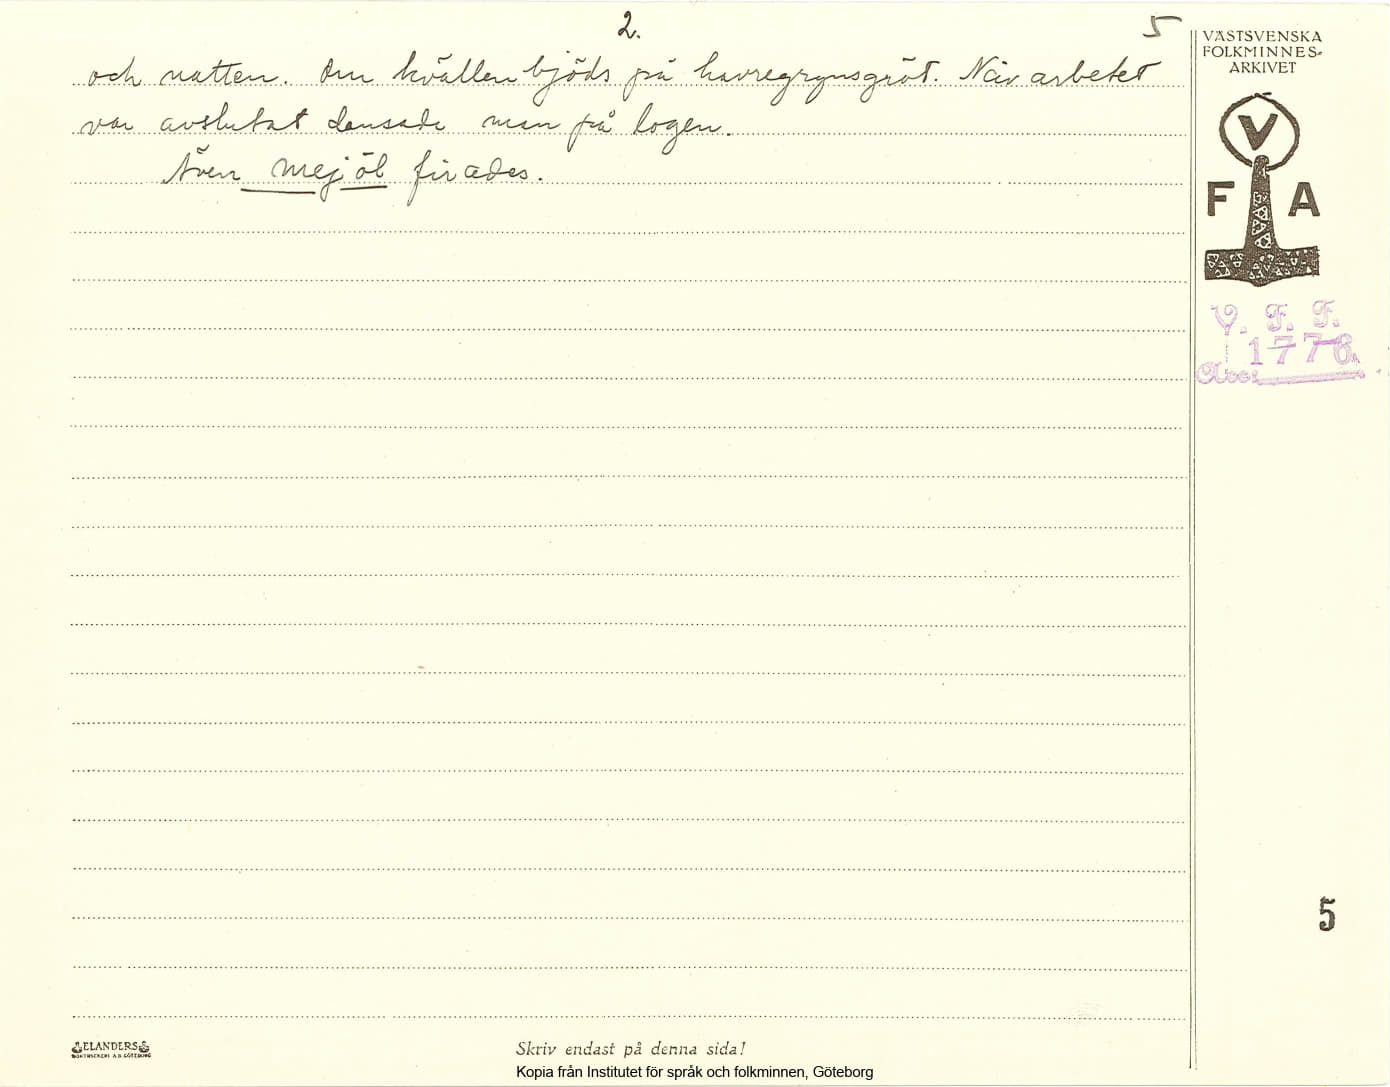 2.
5
och natten. Om kvällen bjöds på havregrynsgröt. När arbetet
var avslutat dansade man på logen.
Även mejöl firades.
VÄSTSVENSKA
FOLKMINNES-
ARKIVET
V
F A
V. F. F.
1776.
Acc:
5
ELANDERS
BOKTRYCKERI A.B. GÖTEBORG
Skriv endast på denna sida!
Kopia från Institutet för språk och folkminnen, Göteborg